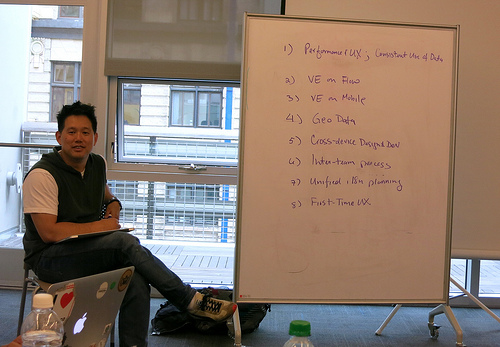 1) Performance / UX ; Consistent Use of Data
2) VE on Flow
3) VE on Mobile
4) Geo Data
5) Cross-device Design & Dev
6) Inter-team process
7) Unified planning
8) First-Time UX